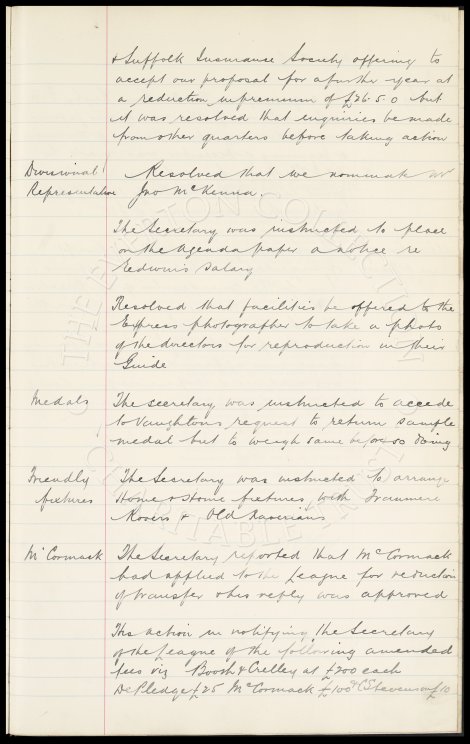 & Suffolk Insurance Society offering to
accept our proposal for a further year at
a reduction in premium of £26.5.0 but
it was resolved that enquiries be made
from other quarters before taking action
Divisional Representative
Resolved that we nominate Mr
Jno McKenna.
The Secretary was instructed to place
on the Agenda paper a notice re
salary
Resolved that facilities be offered to the
Express photographer to take a photo
of the directors for reproduction in their
Guide
Medals
The secretary was instructed to accede
to Vaughtons request to return sample
medal but to weigh same before so doing
Friendly fixtures
The Secretary was instructed to arrange
Home & Home fixtures with Tranmere
Rovers & Old Xaverians
McCormack
The Secretary reported that McCormack
had applied to the League for reduction
of transfer & his reply was approved
His action in notifying the Secretary
of the League of the following amended
fees viz Booth & Crelley at £200 each
De Pledge £25 McCormack £100 & C Stevenson £10
THE EVERTON COLLECTION
CHARITABLE TRUST